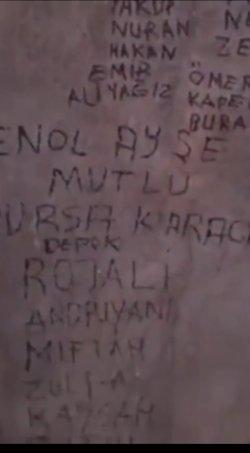 YAKUP
NURAN
HAKAN
ZE
EMİR ÖMER
ALİ YAĞIZ KADE
BURA
ENOL AYŞE
MUTLU
URSA KARAC
DEPOK
ROJALI
ANDRIYANI
MIFTAH